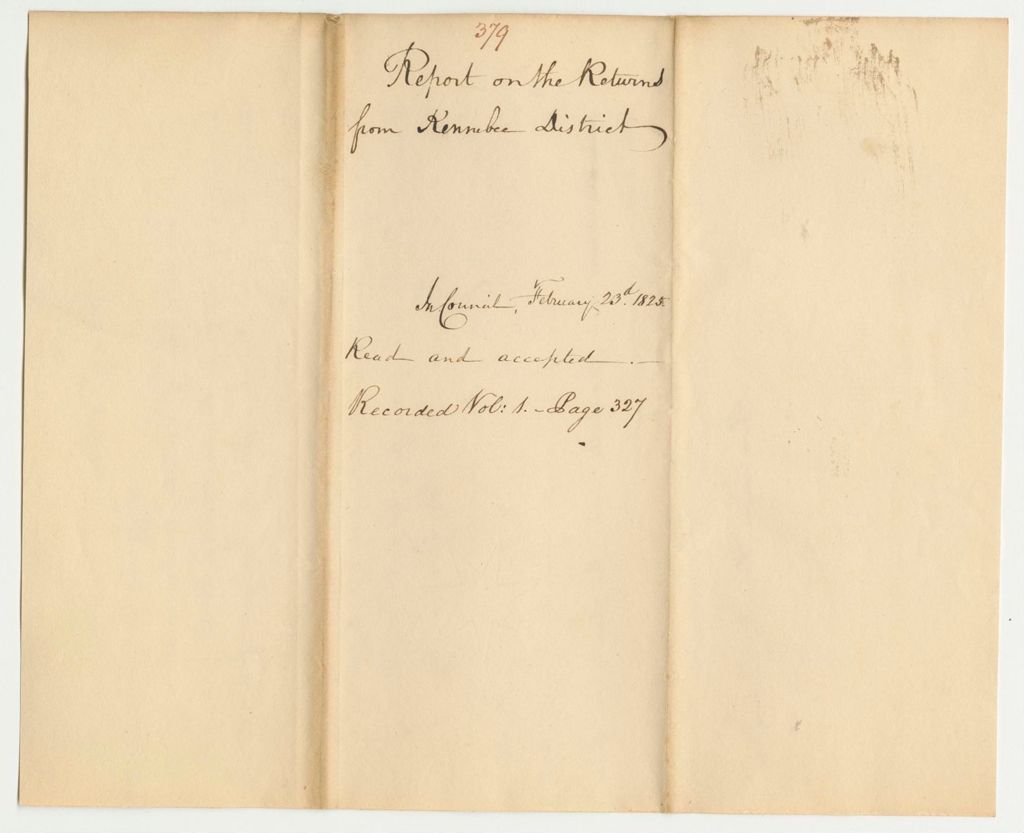 379
Report on the Returns
from Kennebec District
In Council, February 23.d 1825
Read and accepted.—
Recorded Vol: 1. - Page 327